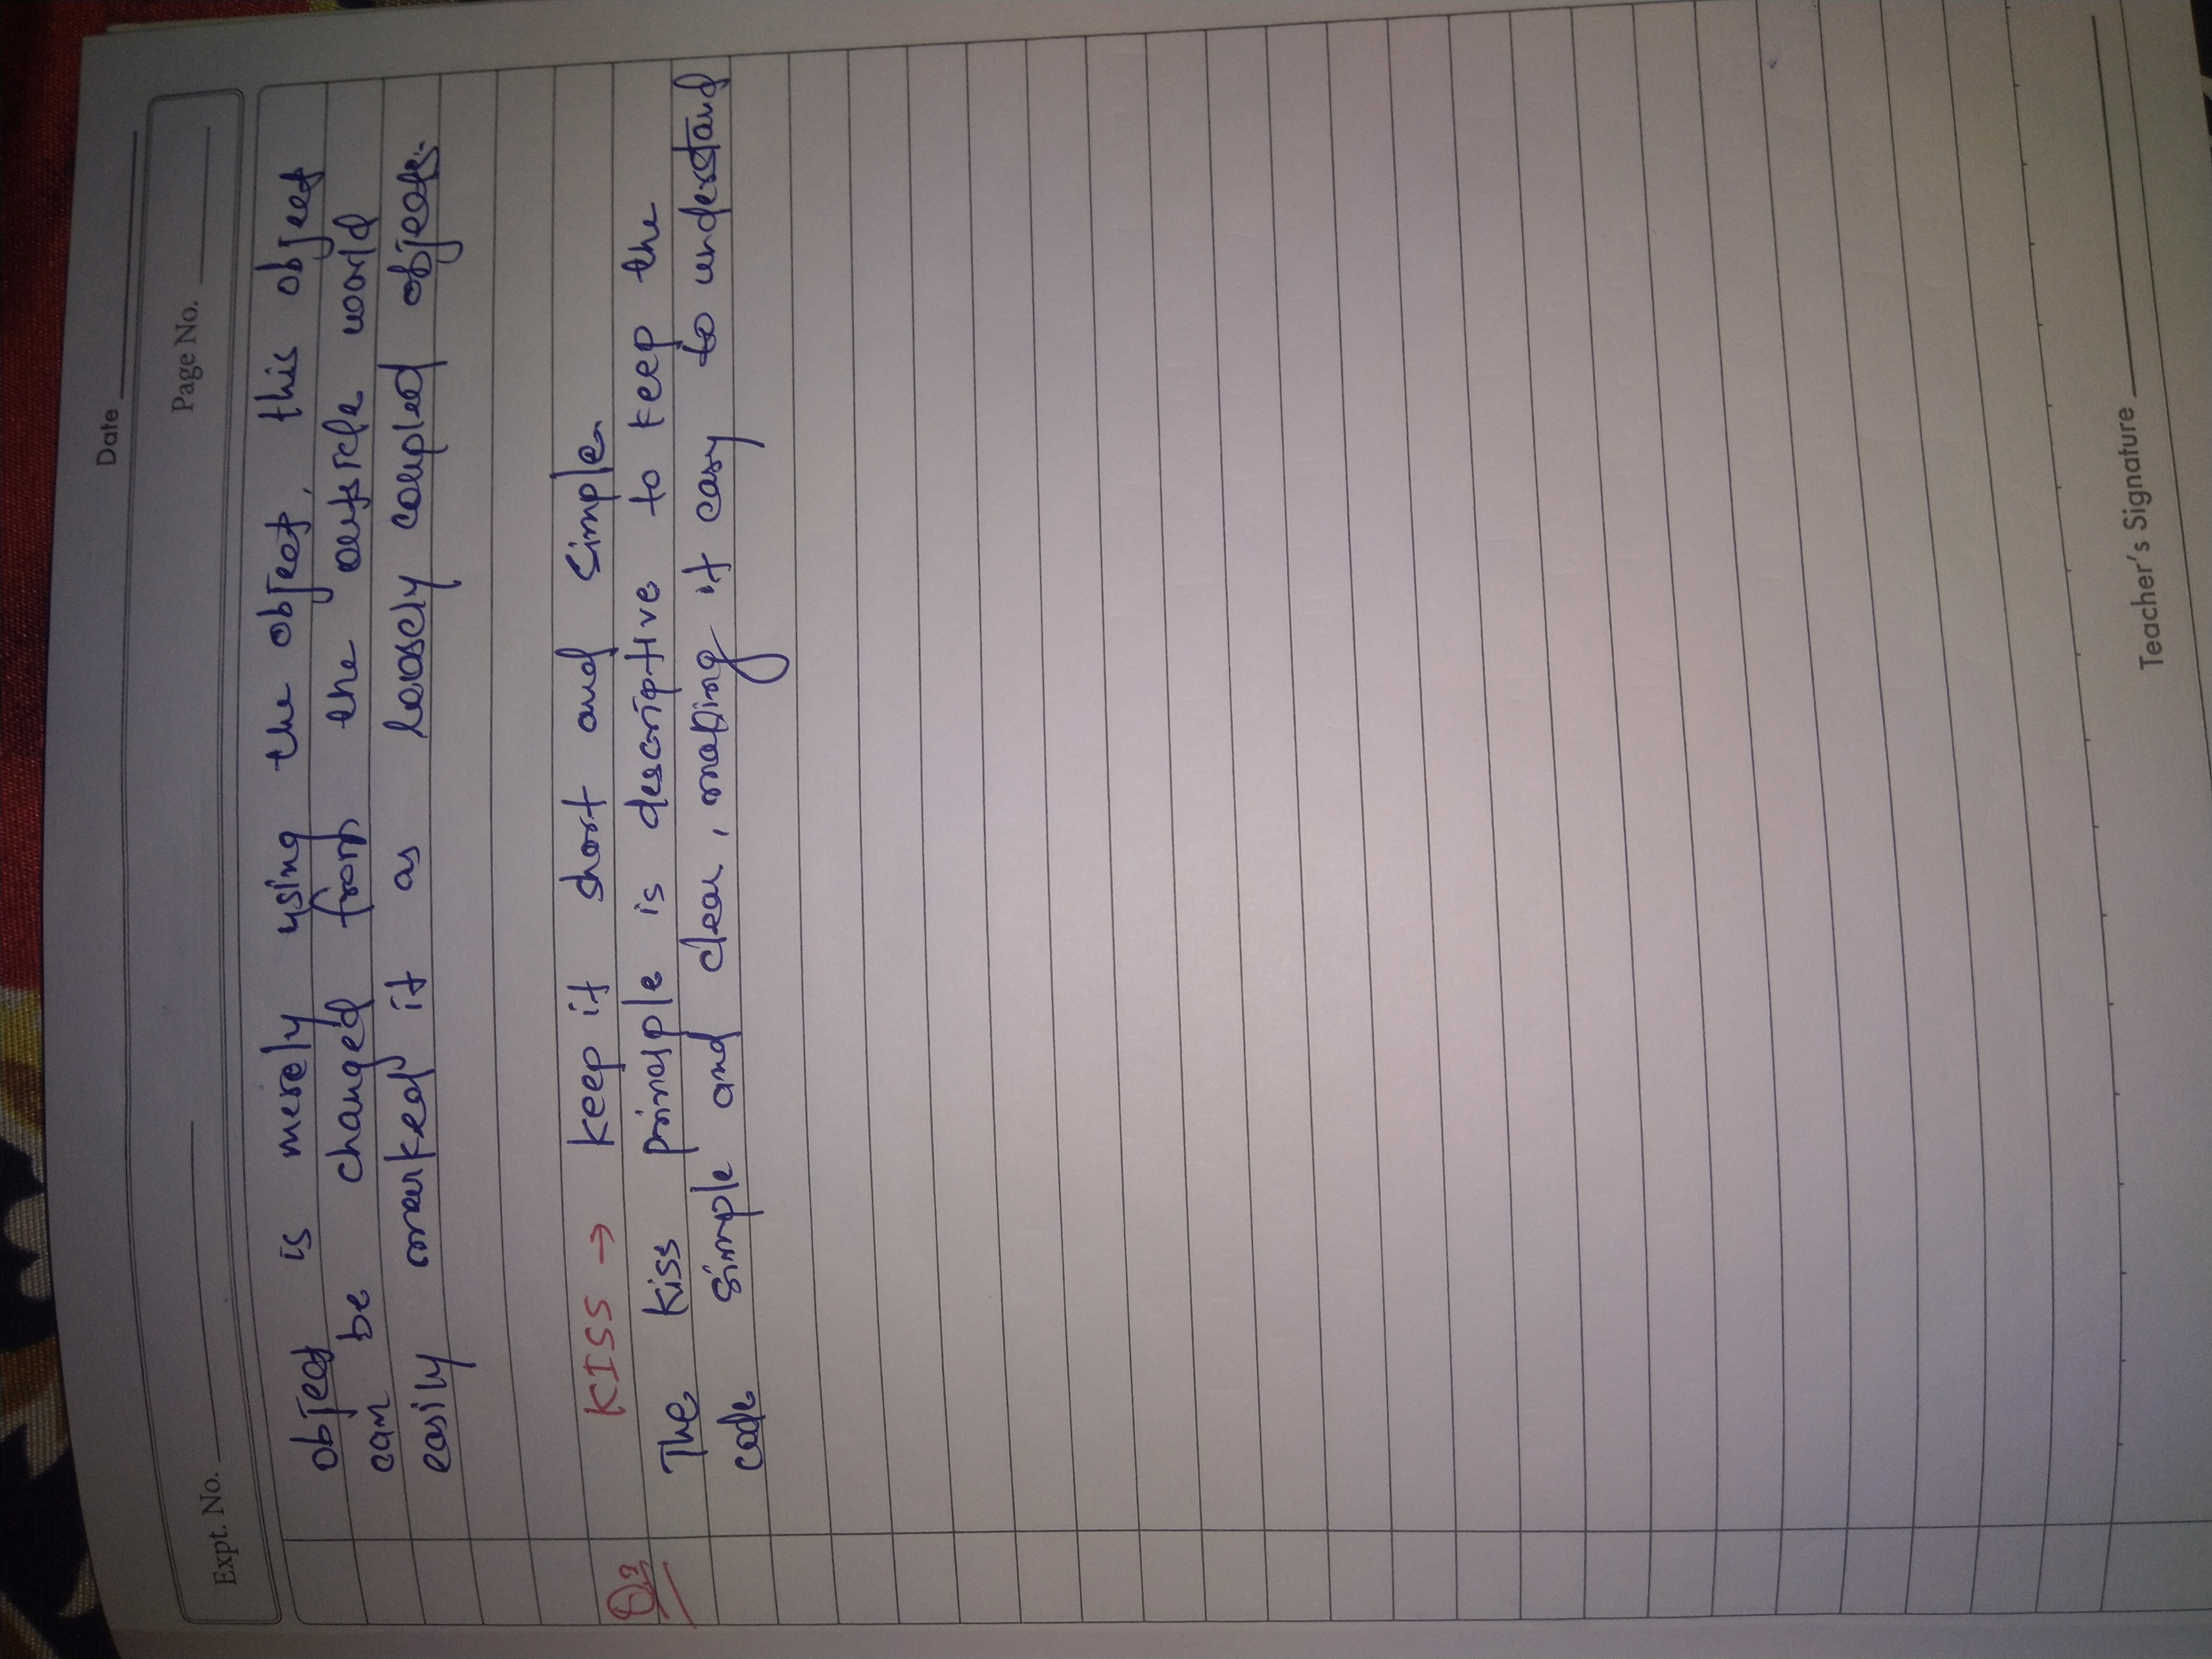 Date
Expt. No.
Page No.
object is merely using the object, this object
can be changed from the outside world
easily marked it as loosely coupled objects.
Q3 KISS → keep it short and simple.
The kiss principle is descriptive to keep the
code simple and clear, making it easy to understand
Teacher's Signature